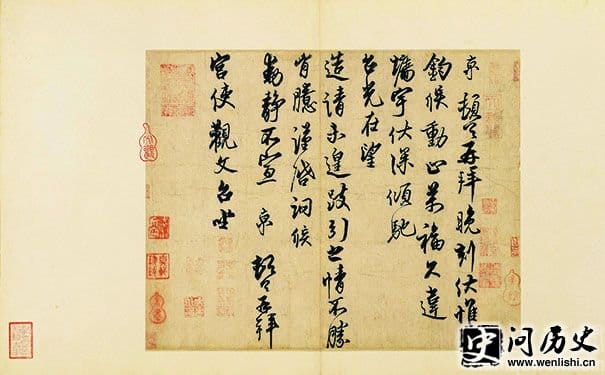 京 頓首再拜晚刻伏惟
鈞候動止萬福久違
牆宇伏深傾馳
台光在望
造請未遑跂引之情不勝
胷臆謹啓詞候
動靜不宣 京 頓首再拜
宮使觀文台坐
问历史
www.wenlishi.cn